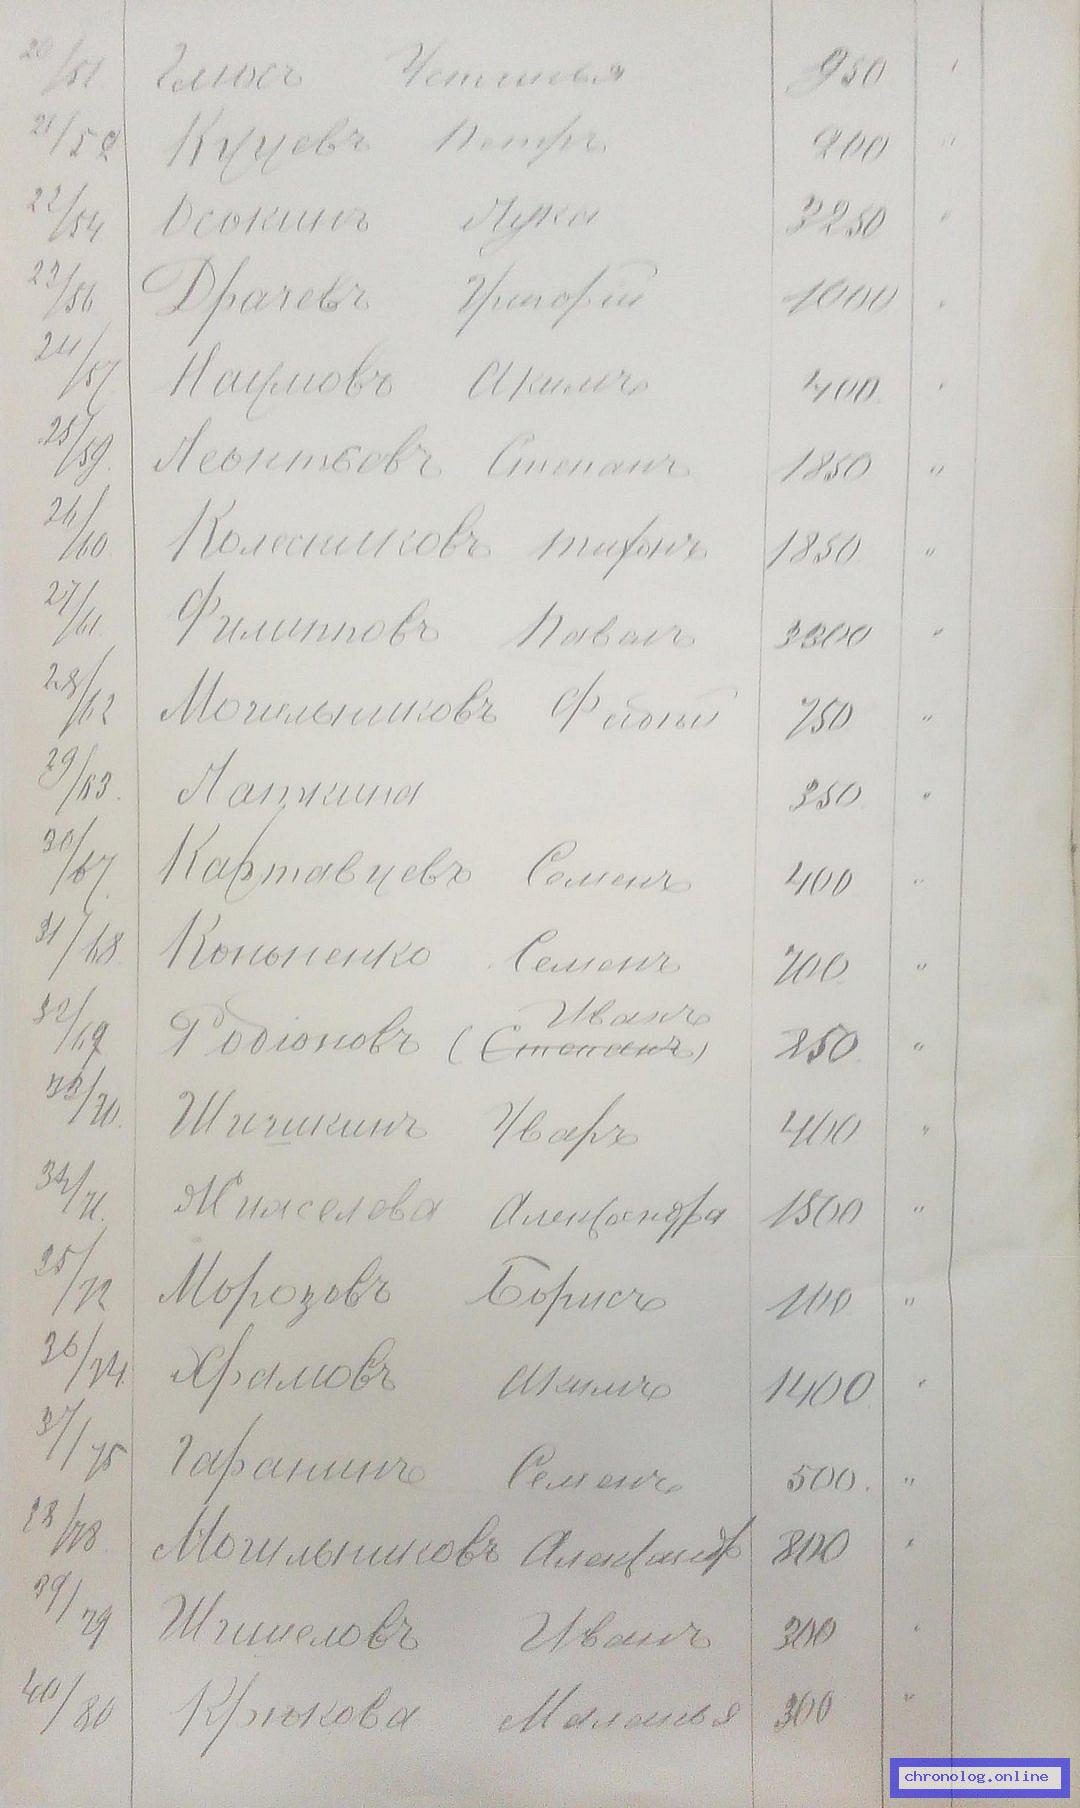 20/51 Глюсъ Устинья 950 "
21/52 Куцевъ Петръ 200 "
22/54 Осокинъ Лука 3250 "
23/56 Драчевъ Григорій 1000 "
24/57 Наумовъ Акимъ 400 "
25/59 Леонтьевъ Степанъ 1850 "
26/60 Колесниковъ Тифонъ 1850 "
27/61 Филипповъ Павелъ 3300 "
28/62 Могильниковъ 750 "
29/63 Лапкина 350 "
30/67 Картавцевъ Семенъ 400 "
31/68 Кононенко Семенъ 700 "
Иванъ
32/69 Родіоновъ (Степанъ) 250 "
33/70 Шишкинъ Уваръ 400 "
34/71 Александра 1500 "
35/72 Морозовъ Борисъ 100 "
36/74 Храмовъ Акимъ 1400 "
37/75 Гаранинъ Семенъ 500 "
38/78 Могильниковъ Александр 800 "
39/79 Шишеловъ Иванъ 300 "
40/80 Крюкова Маланья 300 "
chronolog.online